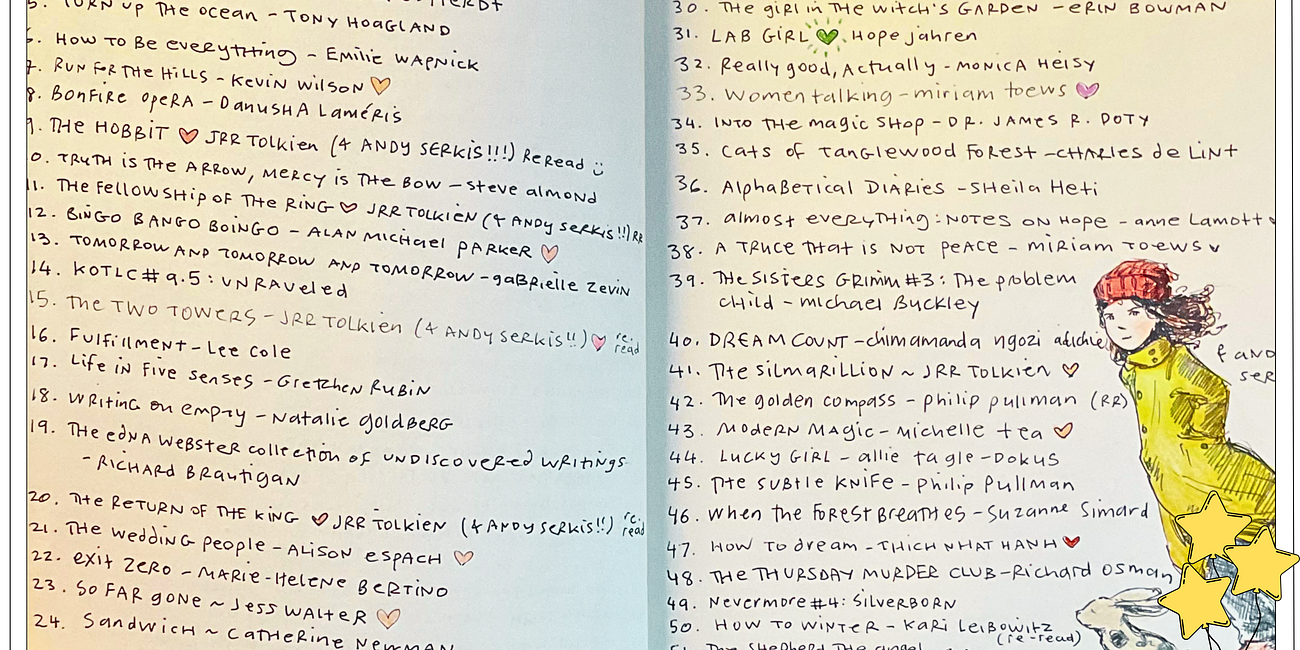 5. TURN UP THE OCEAN - TONY HOAGLAND
6. HOW TO BE EVERYTHING - EMILIE WAPNICK
7. RUN FOR THE HILLS - KEVIN WILSON
8. BONFIRE OPERA - DANUSHA LAMÉRIS
9. THE HOBBIT JRR TOLKIEN (& ANDY SERKIS!!!) REREAD
0. TRUTH IS THE ARROW, MERCY IS THE BOW - STEVE ALMOND
11. THE FELLOWSHIP OF THE RING JRR TOLKIEN (& ANDY SERKIS!!) RR
12. BINGO BANGO BOINGO - ALAN MICHAEL PARKER
13. TOMORROW AND TOMORROW AND TOMORROW - GABRIELLE ZEVIN
14. KOTLC # 9.5: UNRAVELED
15. THE TWO TOWERS - JRR TOLKIEN (& ANDY SERKIS!!) re-read
16. FULFILLMENT - LEE COLE
17. LIFE IN FIVE SENSES - GRETCHEN RUBIN
18. WRITING ON EMPTY - NATALIE GOLDBERG
19. THE EDNA WEBSTER COLLECTION OF UNDISCOVERED WRITINGS
- RICHARD BRAUTIGAN
20. THE RETURN OF THE KING JRR TOLKIEN (& ANDY SERKIS!!) re-read
21. THE WEDDING PEOPLE - ALISON ESPACH
22. EXIT ZERO - MARIE-HELENE BERTINO
23. SO FAR GONE ~ JESS WALTER
24. SANDWICH ~ CATHERINE NEWMAN
30. THE GIRL IN THE WITCH'S GARDEN - ERIN BOWMAN
31. LAB GIRL Hope Jahren
32. Really good, Actually - MONICA HEISY
33. Women talking - miriam toews
34. INTO THE magic SHOP - DR. JAMES R. DOTY
35. Cats of Tanglewood Forest - CHARLES de LINT
36. AlphaBetical DIARIES - SHeila Heti
37. almost everything: NOTES ON HOPE - anne Lamott
38. A TRUCE THAT IS NOT PEACE - miriam TOEWS
39. THE SISTERS GRIMM #3: THE problem
CHILD - michael Buckley
40. DREAM COUNT - chimamanda ngozi adichie
41. THE SILMARILLION ~ JRR TOLKIEN
42. The golden compass - philip pullman (RR)
& AND
SER
43. MODERN MAGIC - michelle tea
44. LUCKY GIRL - allie tagle-Dokus
45. THE SUBTLE KNIFE - Philip Pullman
46. When the FOREST BREATHES - Suzanne Simard
47. HOW TO dream - THICH NHAT HANH
48. THE THURSDAY MURDER CLUB - Richard OSMAN
49. Nevermore #4: SILVERBORN
50. HOW TO WINTER - KARI LEIBOWITZ
(re-read)